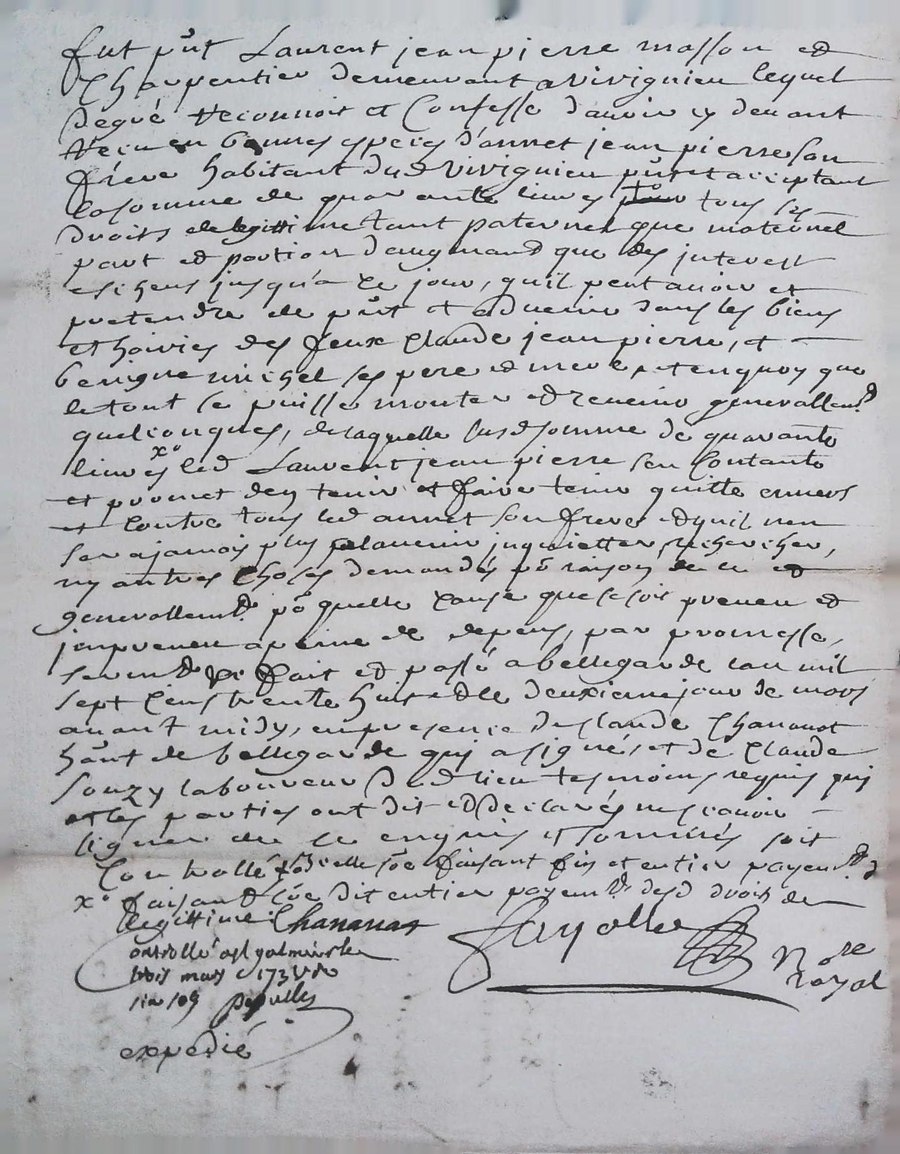 fut pñt Laurent jean pierre masson et
Charpentier demeurant a vivignieu lequel
degré Reconnoit et Confesse d'avoir cy devant
Receu en bonnes especes d'annet jean pierre son
frère habitant dud vivignieu pñt et acceptant
la somme de quarante livres tous ses
droits de legittime tant paternel que maternel
part et portion d'augmand que des interest
esiheus jusqu'a ce jour, quil peut avoir et
pretendre de pñt et advenir dans les biens
et hoiries des feux Claude jean pierre, et
benigne michel ses pere et mere, et enquoy que
le tout se puisse monter et revenir generallemd
quelconques, de laquelle susd somme de quarante
livres xo led Laurent jean pierre sen Contante
et promet den tenir et faire tenir quitte envers
et Contre tous led annet son frere et quil nen
sera jamais plus a lavenir inquietter, rechercher,
ny autres Choses demandés põ raison de ce et
generallemd põ quelle Cause que se soit preveu et
impreveu a peine de depens, par promesse,
sermd fait et passé a bellegarde lan mil
sept Cens trente huit et le deuxieme jour de mars
avant midy, en presence de Claude Chananat
hãnt de bellegarde qui a signé, et de Claude
Souzy laboureur dud lieu tesmoins requis qui
et les parties ont dit et declarés ne scavoir
signer de ce enquis et sommés soit
Controllé xo icelle sõe faisant fin et entier payemd
xo faisant lad sõe dit entier payemd desd droits de
legittime Chananat
Fayolle Nore
royal
ontrollé a st galmier le
trois mars 1738
six sos
expedié